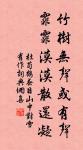 竹樹無聲或有聲
霏霏漠漠散還凝
杜荀鶴春日山中對雪
有作詞典網集